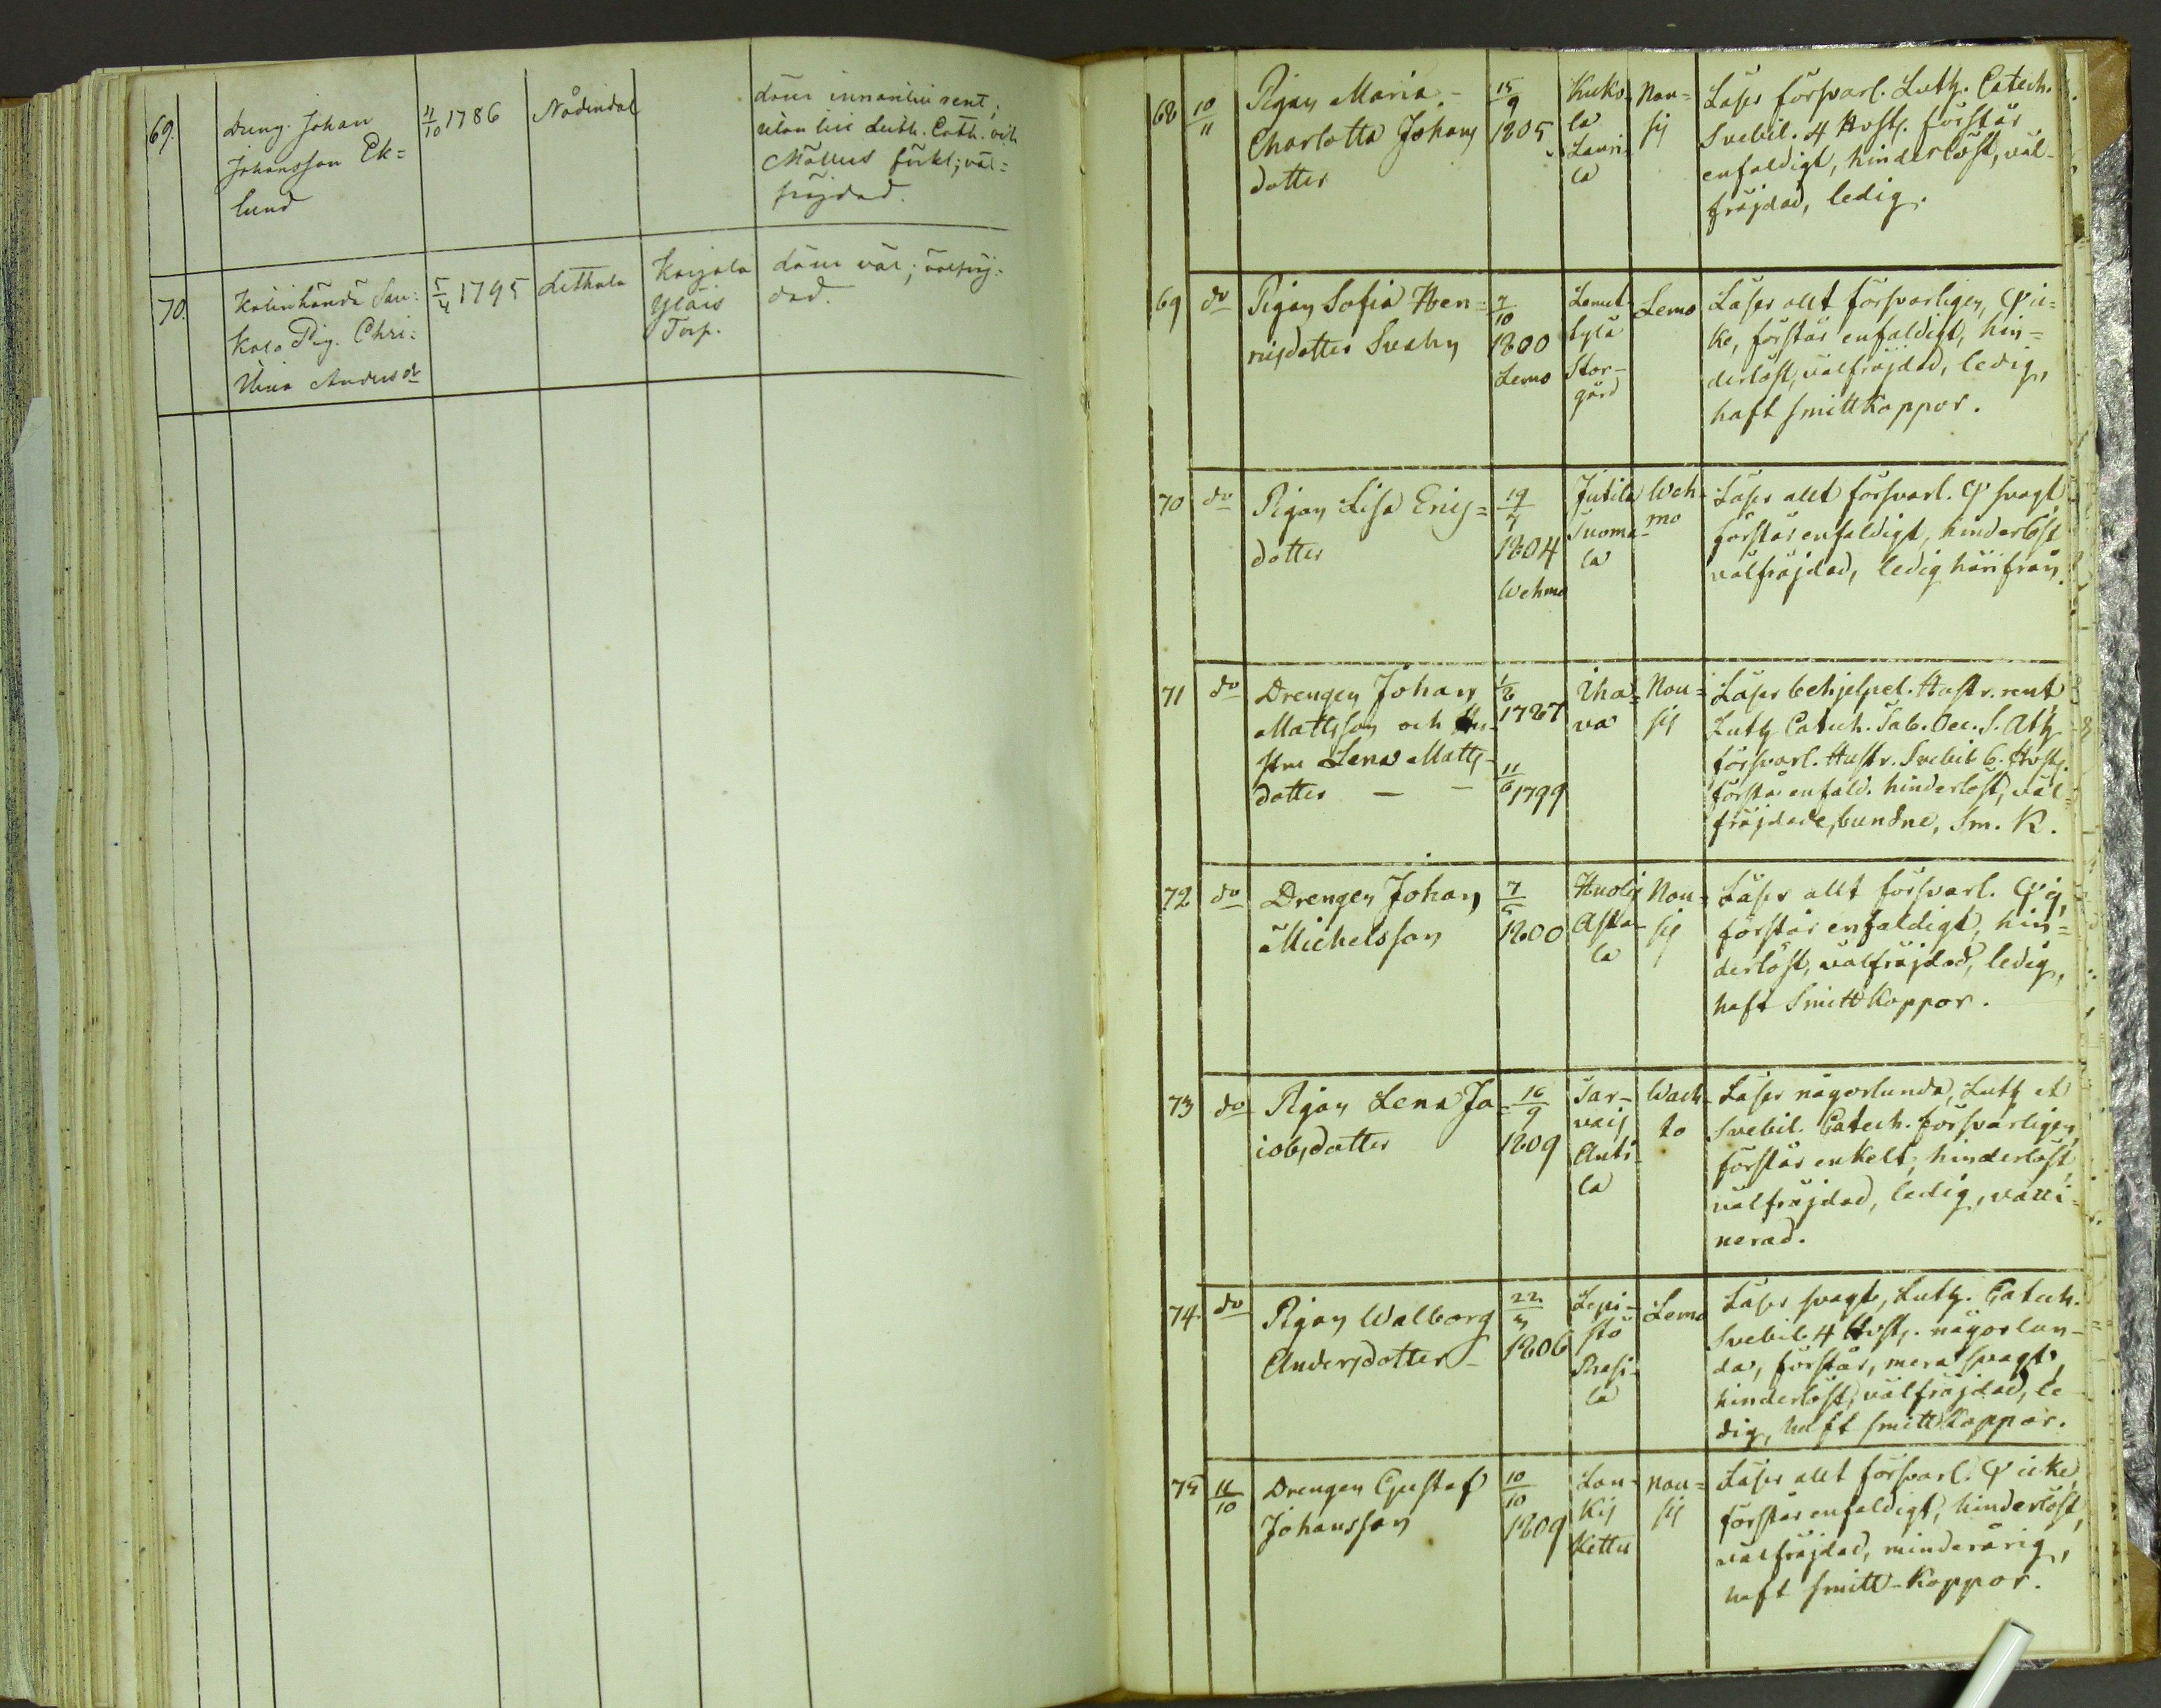 69.
Dreng. Johan
Johansson Ek=
lund
11/10 1786
Nådendal
läser innantill rent;
utan till Luth. Cath. och
Möllers förkl; väl=
frejdad.
70.
Kalinhändä Sau:
kolo Pig. Chri:
stina Andersdr
5/4 1795
Lethala
Karjala
Yläis
Torp.
läser väl; välfrej:
dad.
68
10/11
Pigan Maria
Charlotta Johans
dotter
15/9
1805
Kuko
la
Lauri
la
Nou=
sis
Läser försvarl. Luth. Catech.
Svebil. 4 Hvstj. förstår
enfaldigt, hinderlöst, väl-
fräjdad, ledig.
69
do
Pigan Sofia Hen=
ricsdotter
7/10
1800
Lemo
Lemut
kylä
Stor-
gård
Lemo
Läser allt försvarligen, Q ic=
ke, förstår enfaldigt, hin=
derlöst, välfräjdad, ledig,
haft smittkoppor.
70
do
Pigan Lisa Erics=
dotter
19/4
1804
Wehmo
Jutila
Tuoma-
la
Weh-
mo
Läser allt försvarl. Q svagt,
förstår enfaldigt, hinderlöst
välfräjdad, ledig härifrån.
71
do
Drengen Johan
Mattsson och Hu-
stru Lena Matts-
dotter — —
1/6
1787
11/6 1799
Iha=
va
Nou=
sis
Läser behjelpel. Hustr. rent
Luth Catech. Tab. Oec. S. Ath
försvarl. Hustr. Svebil 6. Hvstj.
förstå enfald. hinderlöst, väl=
fräjdade, bundne, Sm. K.
72
do
Drengen Johan
Michelsson
7/5
1800
Huolis
Asta-
la
Nou=
sis
Läser allt försvarl. Q ej,
förstår enfaldigt, hin=
derlöst, välfräjdad, ledig,
haft Smittkoppor.
73
do
Pigan Lena Ja
cobsdotter
16/9
1809
Sar-
vais
Anti-
la
Wach-
to
Läser någorlunda, Luth et
Svebil. Catech. försvarligen,
förstår enkelt, hinderlöst,
välfräjdad, ledig, vacci-
nerad.
74.
do
Pigan Walborg
Andersdotter
22/4
1806
Lepi-
stö
Prusi-
la
Lemo
Läser svagt, Luth. Catech.
Svebil. 4 Hvstj. någorlun-
da, förstår, mera svagt,
hinderlöst, välfräjdad, le
dig, haft smittkoppor.
75
11/10
Drengen Gustaf
Johansson
10/10
1809
Lau-
kis
Kettu
Nou=
sis
Läser allt försvarl. Q icke,
förstår enfaldigt, hinderlöst,
välfräjdad, minderårig,
haft smitt-koppor.